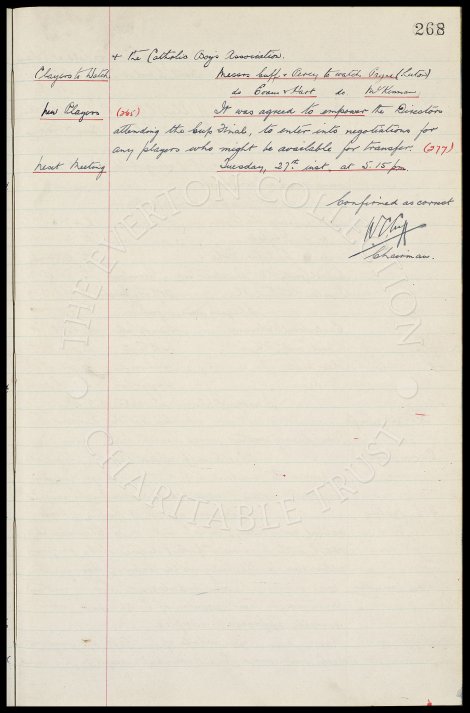 268
+ the Catholic Boys Association.
Players to Watch. Messrs Cuff + Percy to watch Payne (Luton)
do Evans + Hart do. McKinnon
New Players (265) It was agreed to empower the Directors
attending the Cup Final, to enter into negotiations for
any players who might be available for transfer. (277)
Next Meeting Tuesday, 27th inst, at 5.15 pm.
Confirmed as correct
W.C. Cuff
Chairman.
THE EVERTON COLLECTION
CHARITABLE TRUST